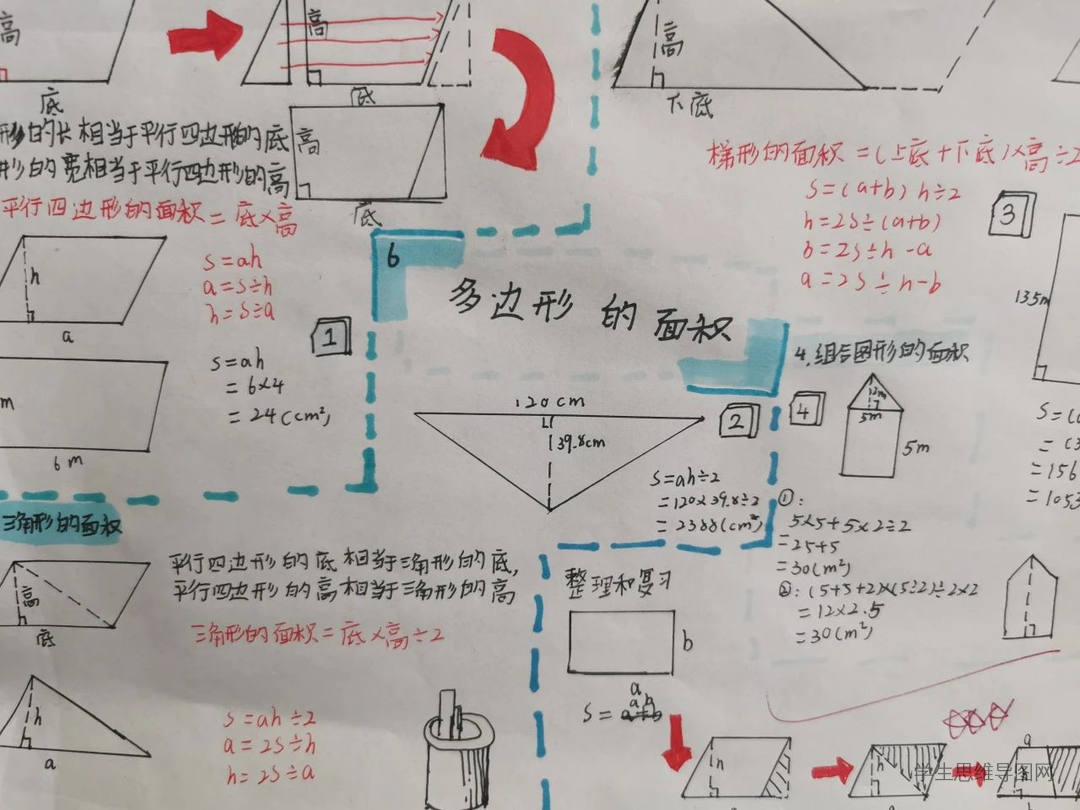 高
底
高
底
形的长相当于平行四边形的底
形的宽相当于平行四边形的高
平行四边形的面积=底×高
高
底
h
a
S=ah
a=S÷h
h=S÷a
1
m
6m
S=ah
=6×4
=24(cm²)
高
下底
梯形的面积=(上底+下底)×高÷2
S=(a+b)h÷2
h=2S÷(a+b)
b=2S÷h-a
a=2S÷h-b
3
13.5m
6
多边形的面积
120cm
39.8cm
2
S=ah÷2
=120×39.8÷2
=2388(cm²)
4.组合图形的面积
4
12m
5m
5m
①:
5×5+5×2÷2
=25+5
=30(m²)
②:(5+5+2)×(5÷2)÷2×2
=12×2.5
=30(m²)
=156
=1053
三角形的面积
高
底
平行四边形的底相当于三角形的底,
平行四边形的高相当于三角形的高
三角形的面积=底×高÷2
h
a
S=ah÷2
a=2S÷h
h=2S÷a
整理和复习
b
a
S=ab
h
h
a
h
学生思维导图网